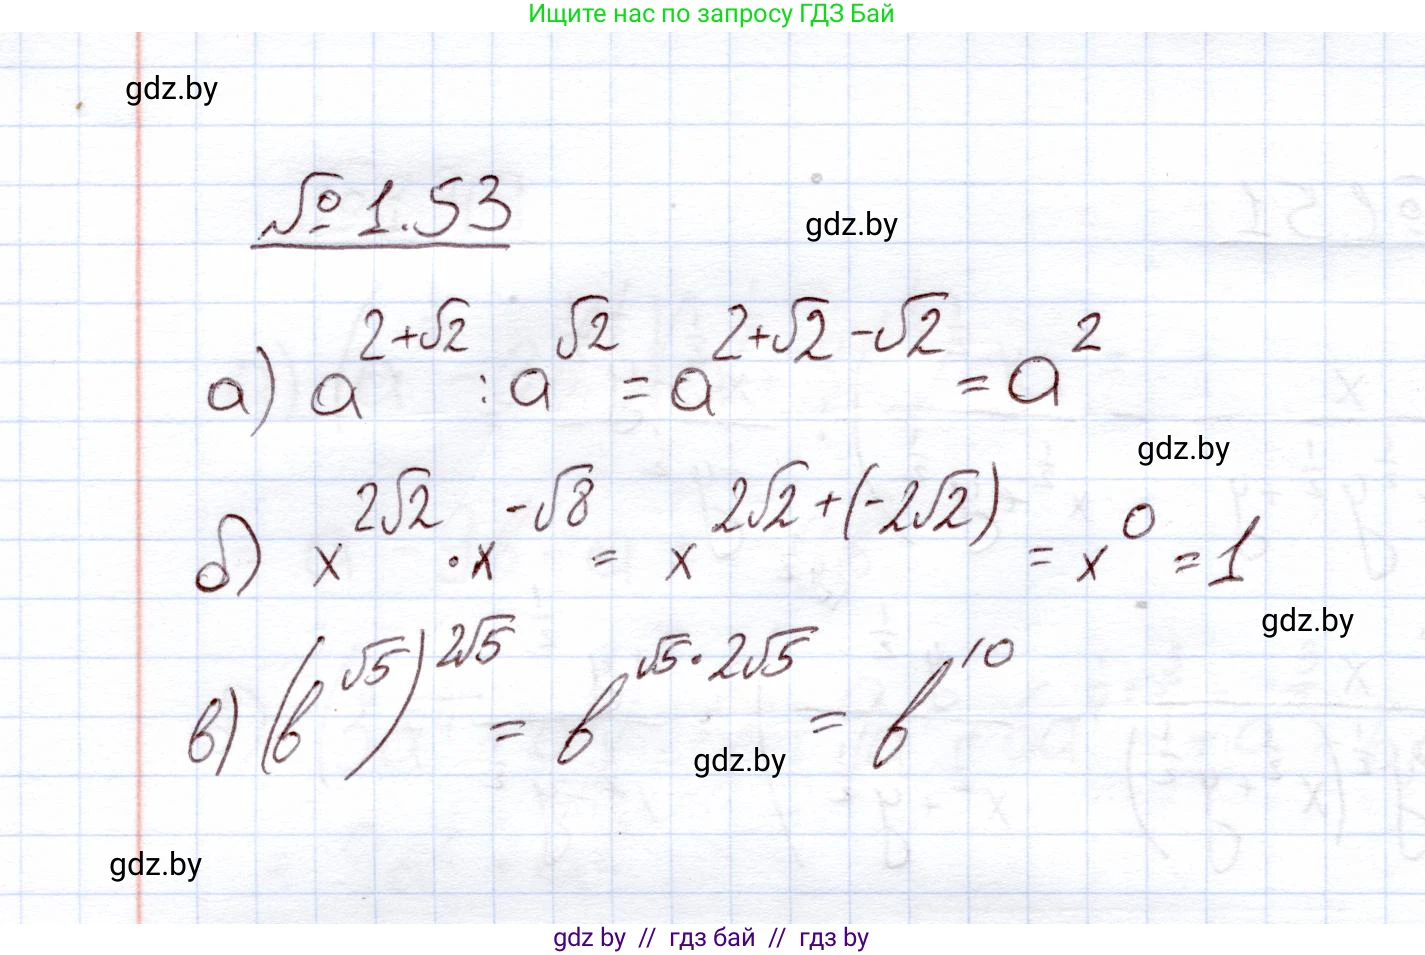 Ищите нас по запросу ГДЗ Бай
gdz.by
№ 1.53
gdz.by
а) a^{2+√2} : a^{√2} = a^{2+√2-√2} = a^2
gdz.by
б) x^{2√2} · x^{-√8} = x^{2√2+(-2√2)} = x^0 = 1
gdz.by
в) (b^{√5})^{2√5} = b^{√5·2√5} = b^{10}
gdz.by
gdz.by
gdz by // гдз бай // гдз by